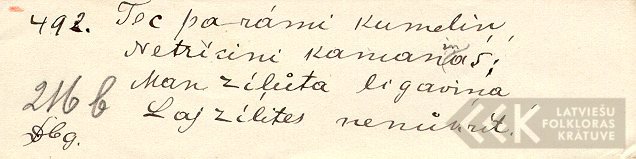 492. Tec pa rámi kumeliņ,
Netricini kamaniņás;
Man zílůta ligaviņa
Laj zílítes nenůkrít.
216 b
Dbg.
LATVIEŠU
FOLKLORAS
KRĀTUVE